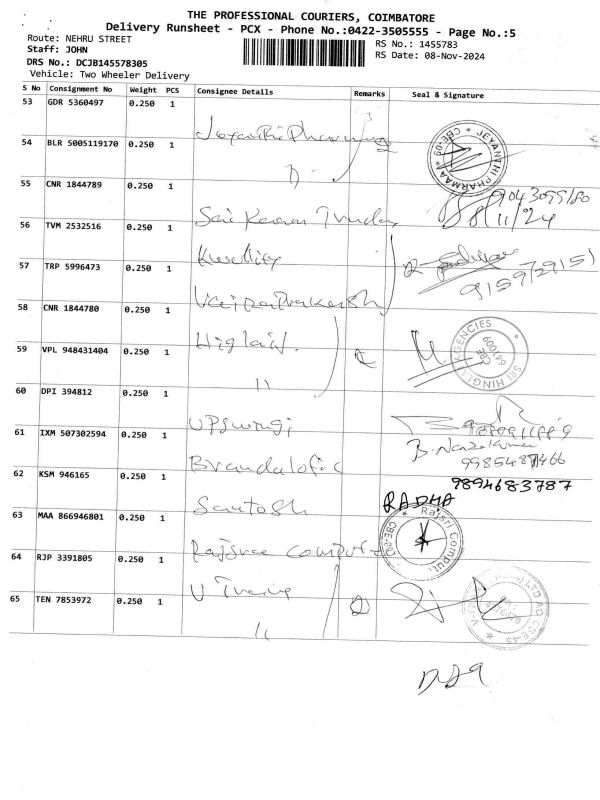 THE PROFESSIONAL COURIERS, COIMBATORE
Delivery Runsheet - PCX - Phone No.:0422-3505555 - Page No.:5
Route: NEHRU STREET
RS No.: 1455783
Staff: JOHN
RS Date: 08-Nov-2024
DRS No.: DCJB145578305
Vehicle: Two Wheeler Delivery
S No Consignment No Weight PCS Consignee Details Remarks Seal & Signature
53 GDR 5360497 0.250 1
54 BLR 5005119170 0.250 1
JEYANTHI PHARMAA * CBE-09 *
55 CNR 1844789 0.250 1
8/11/24
56 TVM 2532516 0.250 1
Kwality
57 TRP 5996473 0.250 1
9159729151
58 CNR 1844780 0.250 1
59 VPL 948431404 0.250 1
11
SRI HINGLAJ AGENCIES CBE 641009
60 DPI 394812 0.250 1
61 IXM 507302594 0.250 1
62 KSM 946165 0.250 1
Santosh
9894683787
RADHA
63 MAA 866946801 0.250 1
Rajsree Compute
Rajsri Comput CBE
64 RJP 3391805 0.250 1
65 TEN 7853972 0.250 1
11